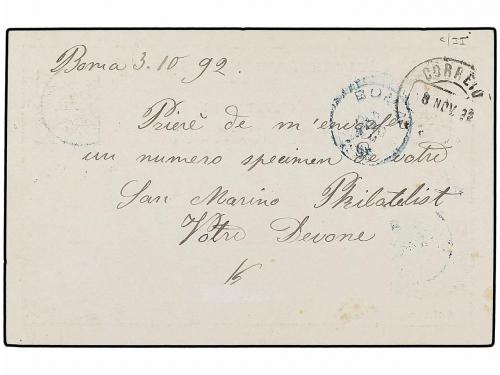 c/25
Boma 3.10 92.
CORREIO
8 NOV. 92
BOMA
Prierè de m'envoyer
un numero specimen de votre
San Marino Philatelist
Votre Devone